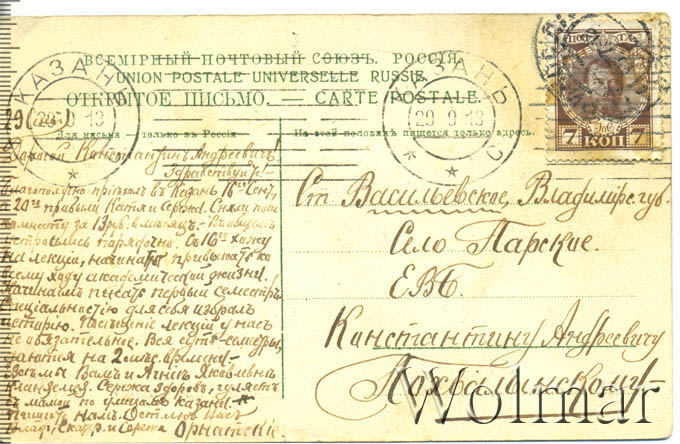 ВСЕМІРНЫЙ ПОЧТОВЫЙ СОЮЗЪ. РОССІЯ.
UNION POSTALE UNIVERSELLE RUSSIE.
ОТКРЫТОЕ ПИСЬМО. — CARTE POSTALE.
Для письма — только въ Россіи
На этой половинѣ пишется только адресъ.
КАЗАНЬ
29 9 13
КАЗАНЬ
29 9 13
7 КОП 7
Дорогой Константинъ Андреевичъ!
Здравствуйте!
Благополучно пріѣхалъ въ Казань 16го Сент.,
20го прибыли Катя и Сережа. Сняли
комнату за 13 руб. въ мѣсяцъ.
устроились порядочно. Съ 16го хожу
на лекціи, начинаю привыкать ко
всему ходу академической жизни!
Начинаемъ писать первый семестръ.
Спеціальностію для себя избралъ
исторію. Посѣщеніе лекцій у насъ
не обязательное. Вся суть семестры,
на 2 мѣс. времени.
Всѣмъ Вамъ и Агніи Яковлевнѣ
кланяемся. Сережа здоровъ, гуляетъ
съ мамой по улицамъ Казани.
Пишите намъ.
Орнатскіе
Ст Васильевское, Владимірс. губ.
Село Парское.
ЕВБ.
Константину Андреевичу
Похвалынскому
Wolmar